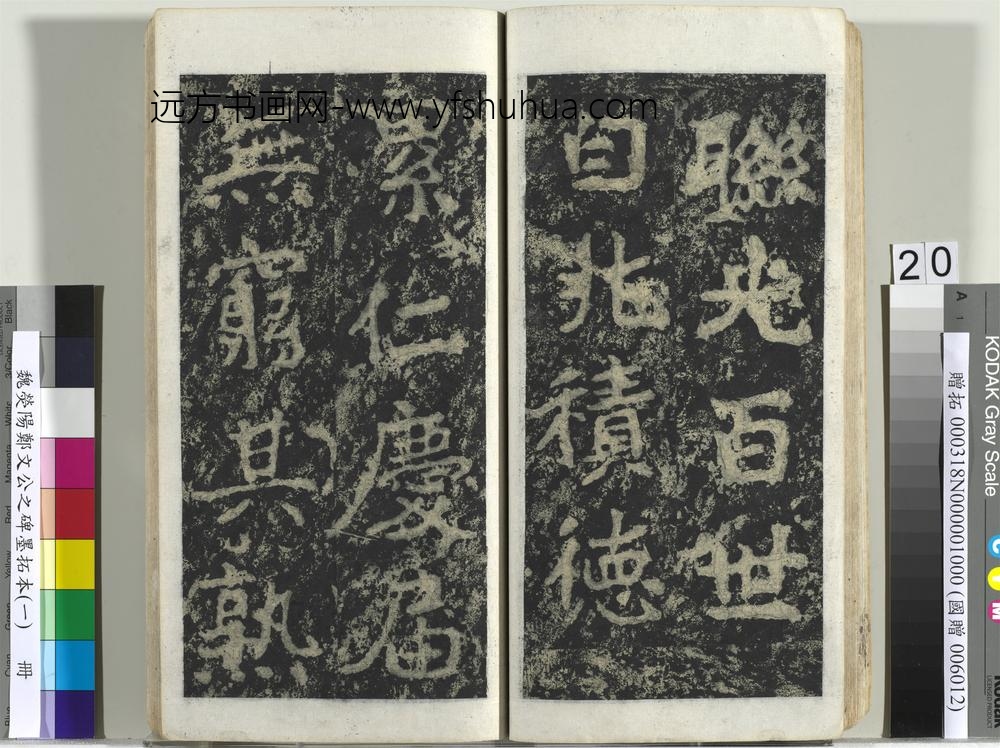 远方书画网-www.yfshuhua.com
聯光百世
自非積德
累仁慶屆
無窮其孰
20
贈拓 000318N000001000 (國贈 006012)
魏滎陽鄭文公之碑墨拓本(一) 冊
KODAK Gray Scale
A 1
C
Y
M
Kodak
LICENSED PRODUCT
Black
3/Color
White
Magenta
Red
Yellow
Green
Cyan
Blue